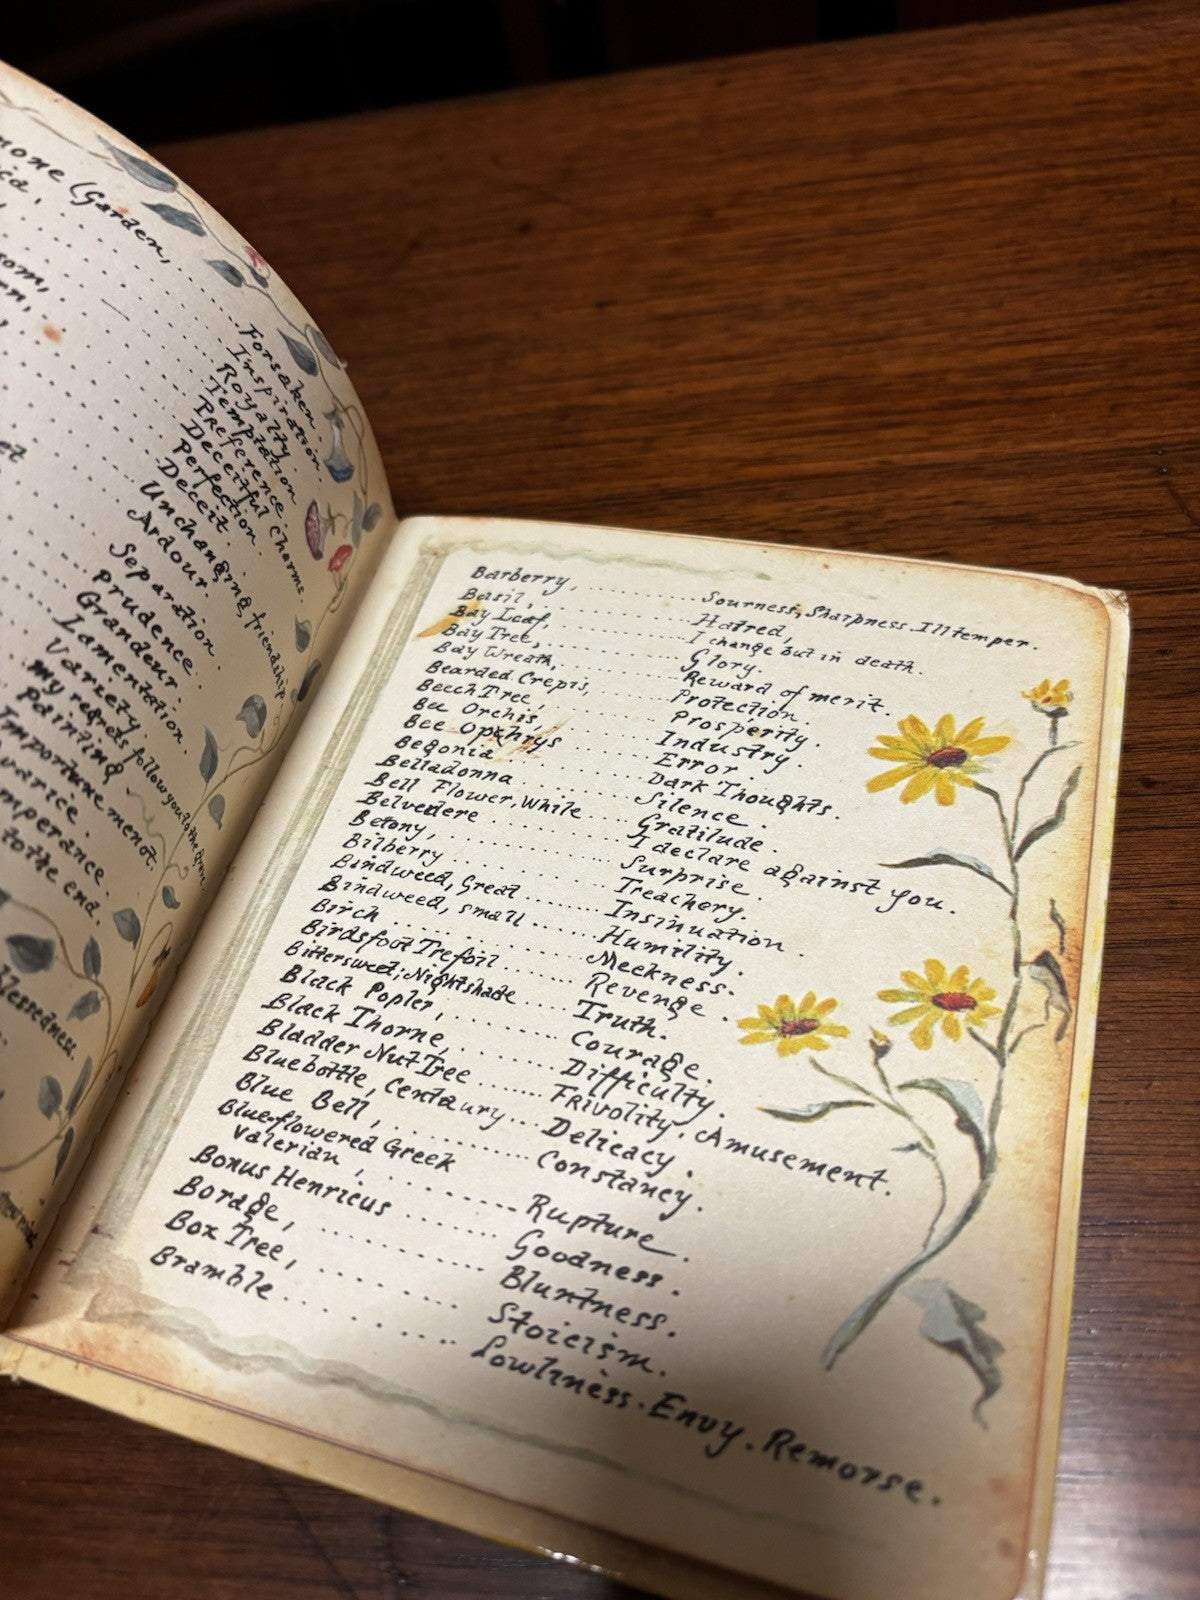 (Garden,
Forsaken.
Inspiration.
Royalty.
Temptation
Preference.
Deceitful charms.
Perfection.
Deceit.
Unchanging friendship.
Ardour.
Separation.
Prudence.
Grandeur.
Lamentation.
Variety.
my regrets follow you to the grave.
Painting
Importune me not.
to the end.
Barberry, ........ Sourness, Sharpness. Ill temper.
Basil, ........ Hatred,
Bay Leaf, ........ I change but in death.
Bay Tree, ........ Glory.
Bay Wreath, ........ Reward of merit.
Bearded Crepis, ........ Protection.
Beech Tree, ........ Prosperity.
Bee Orchis ........ Industry.
Bee Ophrys ........ Error.
Begonia ........ Dark Thoughts.
Belladonna ........ Silence.
Bell Flower, While .... Gratilude.
Belvedere ........ I declare against you.
Betony, ........ Surprise.
Bilberry ........ Treachery.
Bindweed, Great ........ Insinuation
Bindweed, small ........ Humility.
Birch ........ Meekness.
Birdsfoot Trefoil ........ Revenge.
Bittersweet; Nightshade .... Truth.
Black Popler, ........ Courage.
Black Thorne, ........ Difficulty.
Bladder Nut Tree ...... Frivolity. Amusement.
Bluebottle, Centaury ... Delicacy.
Blue Bell, ........ Constancy.
Blue-flowered Greek
Valerian, ........ Rupture.
Bonus Henricus ........ Goodness.
Borage, ........ Bluntness.
Box Tree, ........ Stoicism.
Bramble ........ Lowliness. Envy. Remorse.